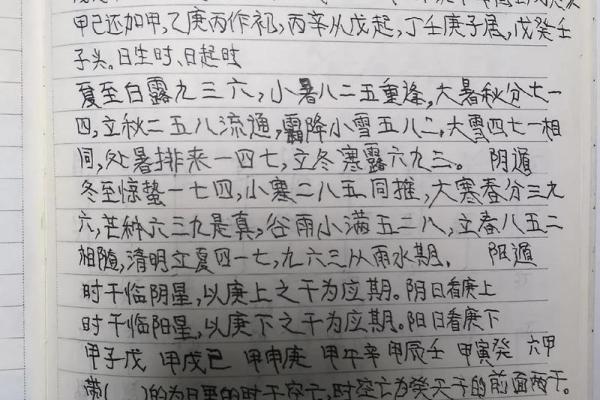 甲己还加甲,乙庚丙作初,丙辛从戊起,丁壬庚子居,戊癸壬
子头。日生时、日起时
夏至白露九三六,小暑八二五重逢,大暑秋分七一
四,立秋二五八流通,霜降小雪五八二,大雪四七一相
同,处暑排来一四七,立冬寒露六九三。 阴遁
冬至惊蛰一七四,小寒二八五同推,大寒春分三九
六,芒种六三九是真,谷雨小满五二八,立春八五二
相随,清明立夏四一七,九六三从雨水期. 阳遁
时干临阴星,以庚上之干为应期。阴日看庚上
时干临阳星,以庚下之干为应期。阳日看庚下
甲子戊 甲戌己 甲申庚 甲午辛 甲辰壬 甲寅癸 六甲
带( )的为日里的时干空亡,时空亡为癸天干的前面两干。